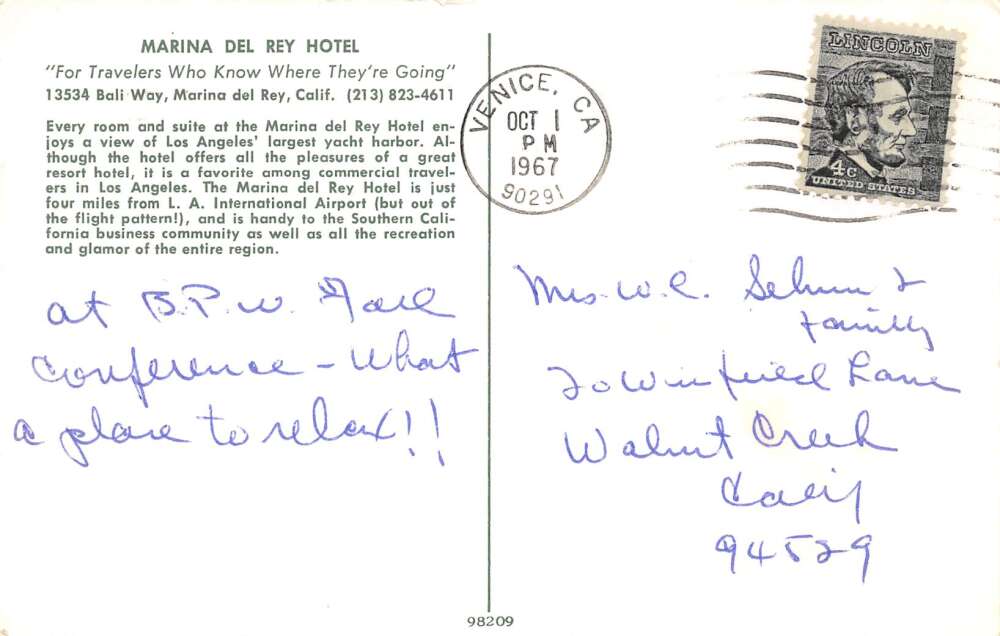 MARINA DEL REY HOTEL
"For Travelers Who Know Where They're Going"
13534 Bali Way, Marina del Rey, Calif. (213) 823-4611
Every room and suite at the Marina del Rey Hotel en-
joys a view of Los Angeles' largest yacht harbor. Al-
though the hotel offers all the pleasures of a great
resort hotel, it is a favorite among commercial travel-
ers in Los Angeles. The Marina del Rey Hotel is just
four miles from L. A. International Airport (but out of
the flight pattern!), and is handy to the Southern Cali-
fornia business community as well as all the recreation
and glamor of the entire region.
at B.P.W.
Conference - What
a place to relax!!
VENICE, CA
OCT 1
PM
1967
90291
LINCOLN
4c
UNITED STATES
Mrs. W. C. &
family
Winfield Lane
Walnut Creek
Calif
94529
98209